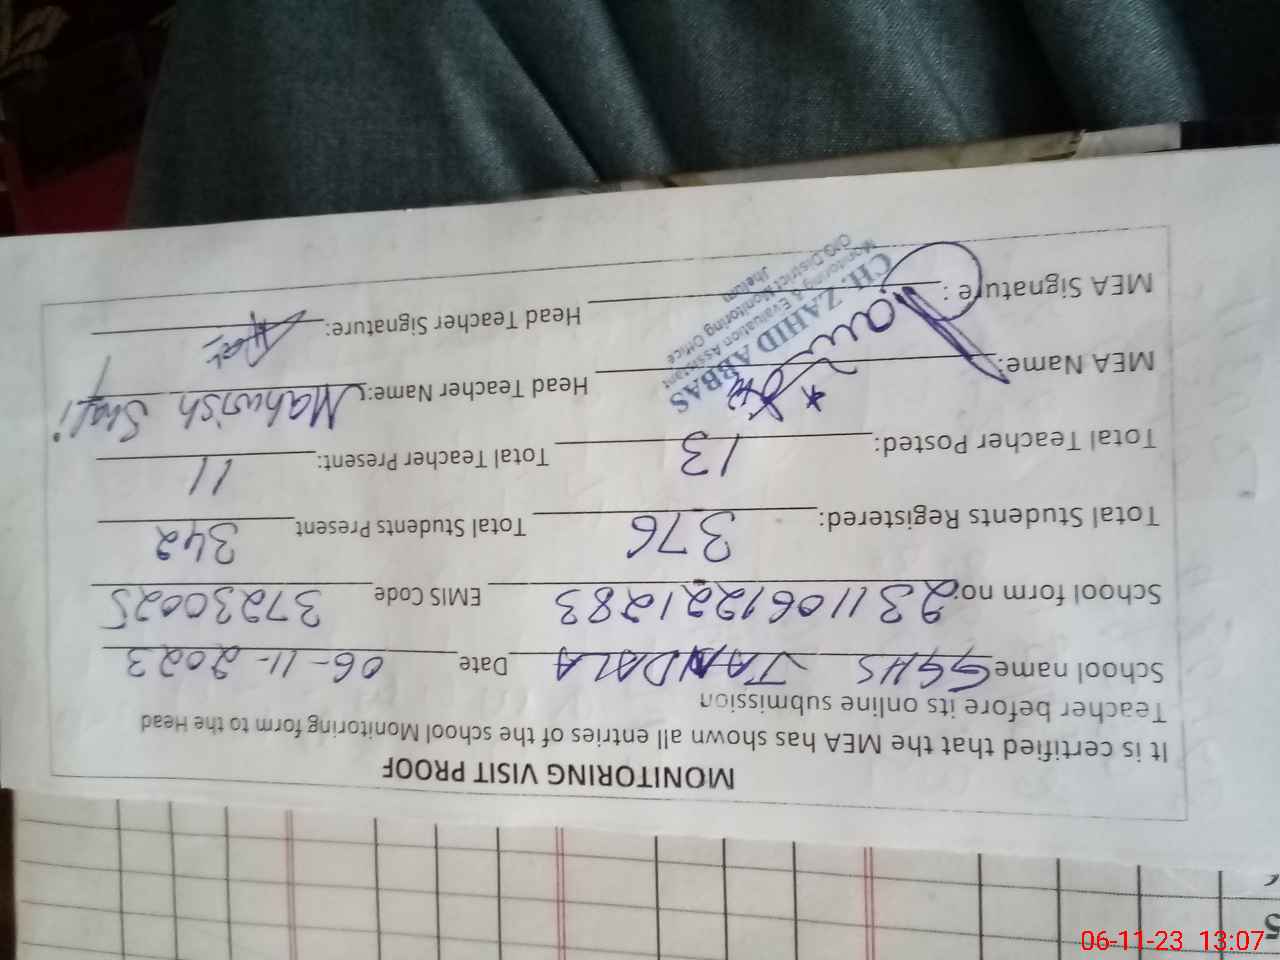 MONITORING VISIT PROOF
It is certified that the MEA has shown all entries of the school Monitoring form to the Head
Teacher before its online submission
School name GGHS JANDALA Date 06-11-2023
School form no: 2311061221283 EMIS Code 37230025
Total Students Registered: 376 Total Students Present 342
Total Teacher Posted: 13 Total Teacher Present: 11
MEA Name: Head Teacher Name: Mahwish Shafi
MEA Signature: Head Teacher Signature:
CH. ZAHID ABBAS
Monitoring & Evaluation Assistant
O/O District Monitoring Office
Jhelum
5
06-11-23 13:07